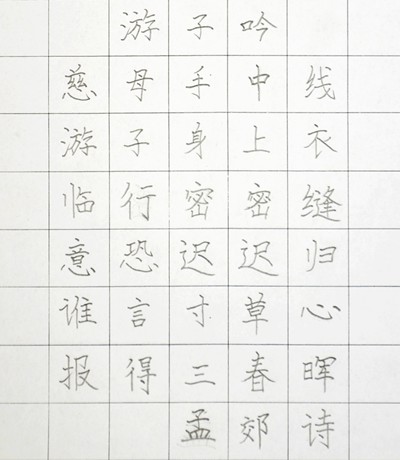 游子吟
慈母手中线
游子身上衣
临行密密缝
意恐迟迟归
谁言寸草心
报得三春晖
孟郊诗